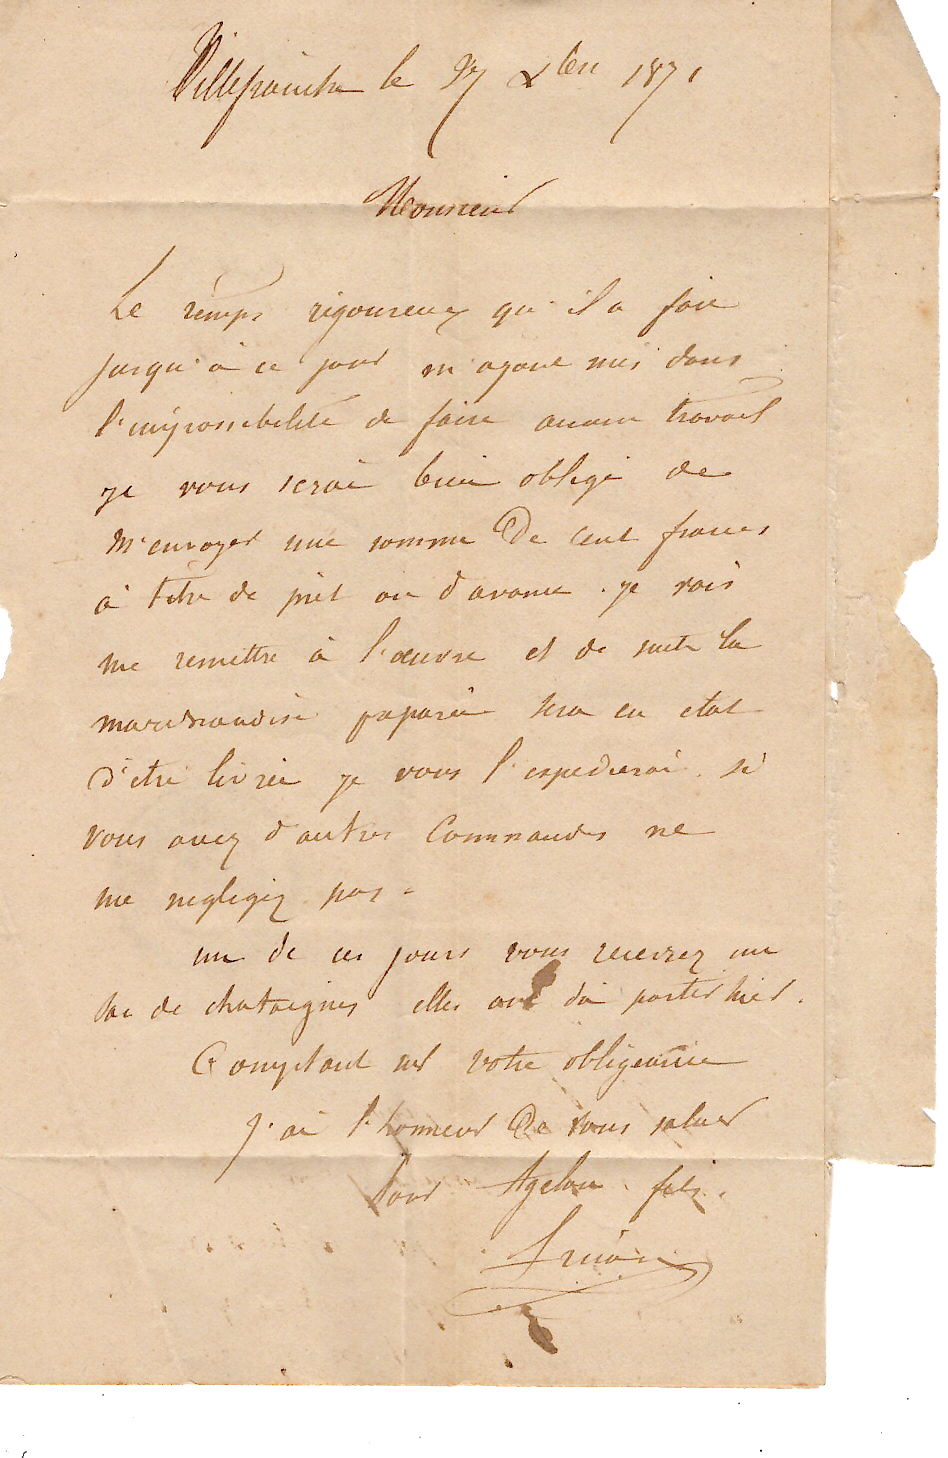 Villefranche le 27 Xbre 1871
Monsieur
Le temps rigoureux qu'il a fait
jusqu'à ce jour m'ayant mis dans
l'impossibilité de faire aucun travail
je vous serai bien obligé de
m'envoyer une somme De Cent francs
à titre de prêt ou d'avance. je vais
me remettre à l'œuvre et de suite la
marchandise préparée sera en etat
d'être livrée je vous l'expedierai. si
vous avez d'autres Commandes ne
me negligez pas.
un de ces jours vous recevrez un
sac de chataignes elles ont dû partir hier.
Comptant sur votre obligeance
J'ai l'honneur De vous saluer
Pour fils.